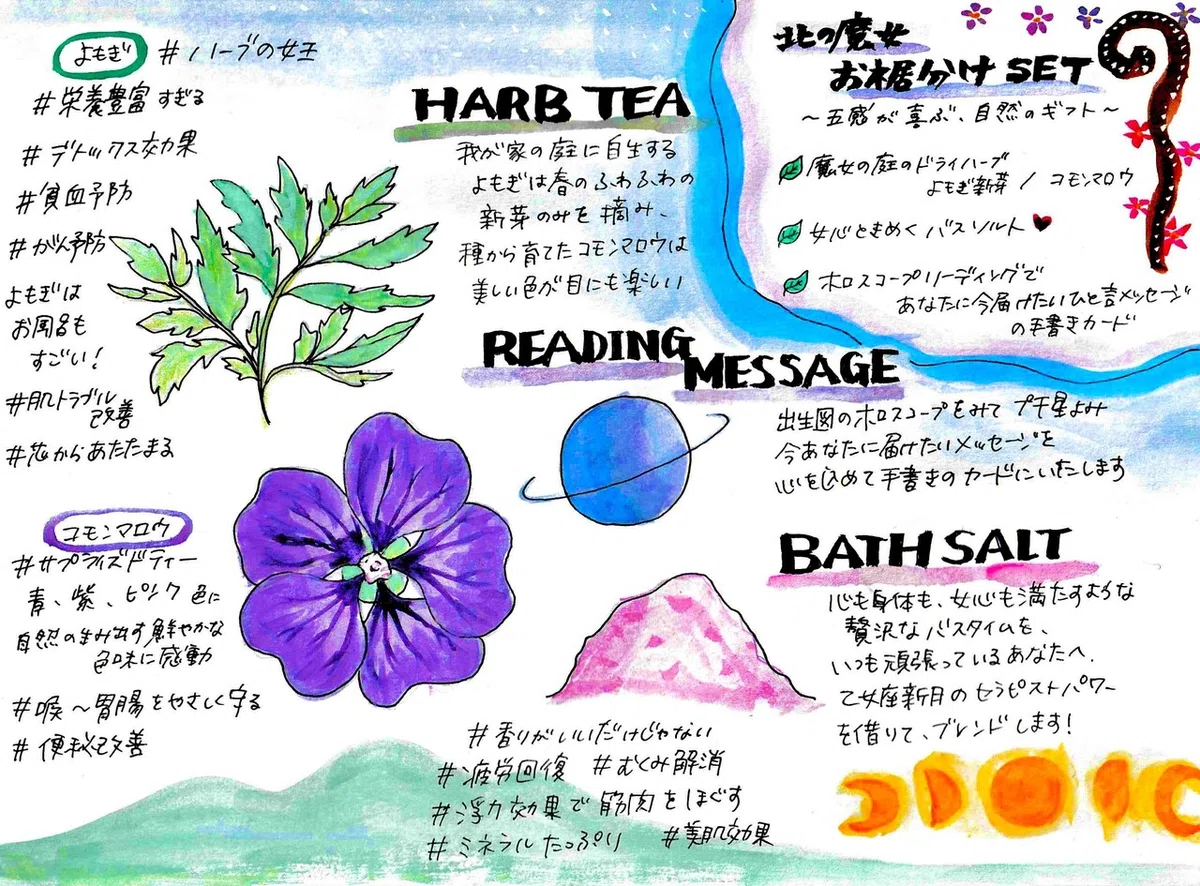 北の魔女
お裾分け SET
〜五感が喜ぶ、自然のギフト〜
魔女の庭のドライハーブ
よもぎ新芽 / コモンマロウ
女心ときめく バスソルト
ホロスコープリーディングで
あなたに今届けたいひと言メッセージ
の手書きカード
よもぎ #ハーブの女王
#栄養豊富すぎる
#デトックス効果
#貧血予防
#がん予防
よもぎは
お風呂も
すごい!
#肌トラブル
改善
#芯からあたたまる
HARB TEA
我が家の庭に自生する
よもぎは春のふわふわの
新芽のみを摘み、
種から育てたコモンマロウは
美しい色が目にも楽しい
コモンマロウ
#サプライズドティー
青、紫、ピンク色に
自然の生み出す鮮やかな
色味に感動
#喉〜胃腸をやさしく守る
#便秘改善
READING
MESSAGE
出生図のホロスコープをみて プチ星よみ
今あなたに届けたいメッセージを
心を込めて手書きのカードにいたします
BATH SALT
心も身体も、女心も満たすような
贅沢なバスタイムを、
いつも頑張っているあなたへ.
乙女座新月のセラピストパワー
を借りて、ブレンドします!
#香りがいいだけじゃない
#疲労回復 #むくみ解消
#浮力効果で筋肉をほぐす
#ミネラルたっぷり #美肌効果